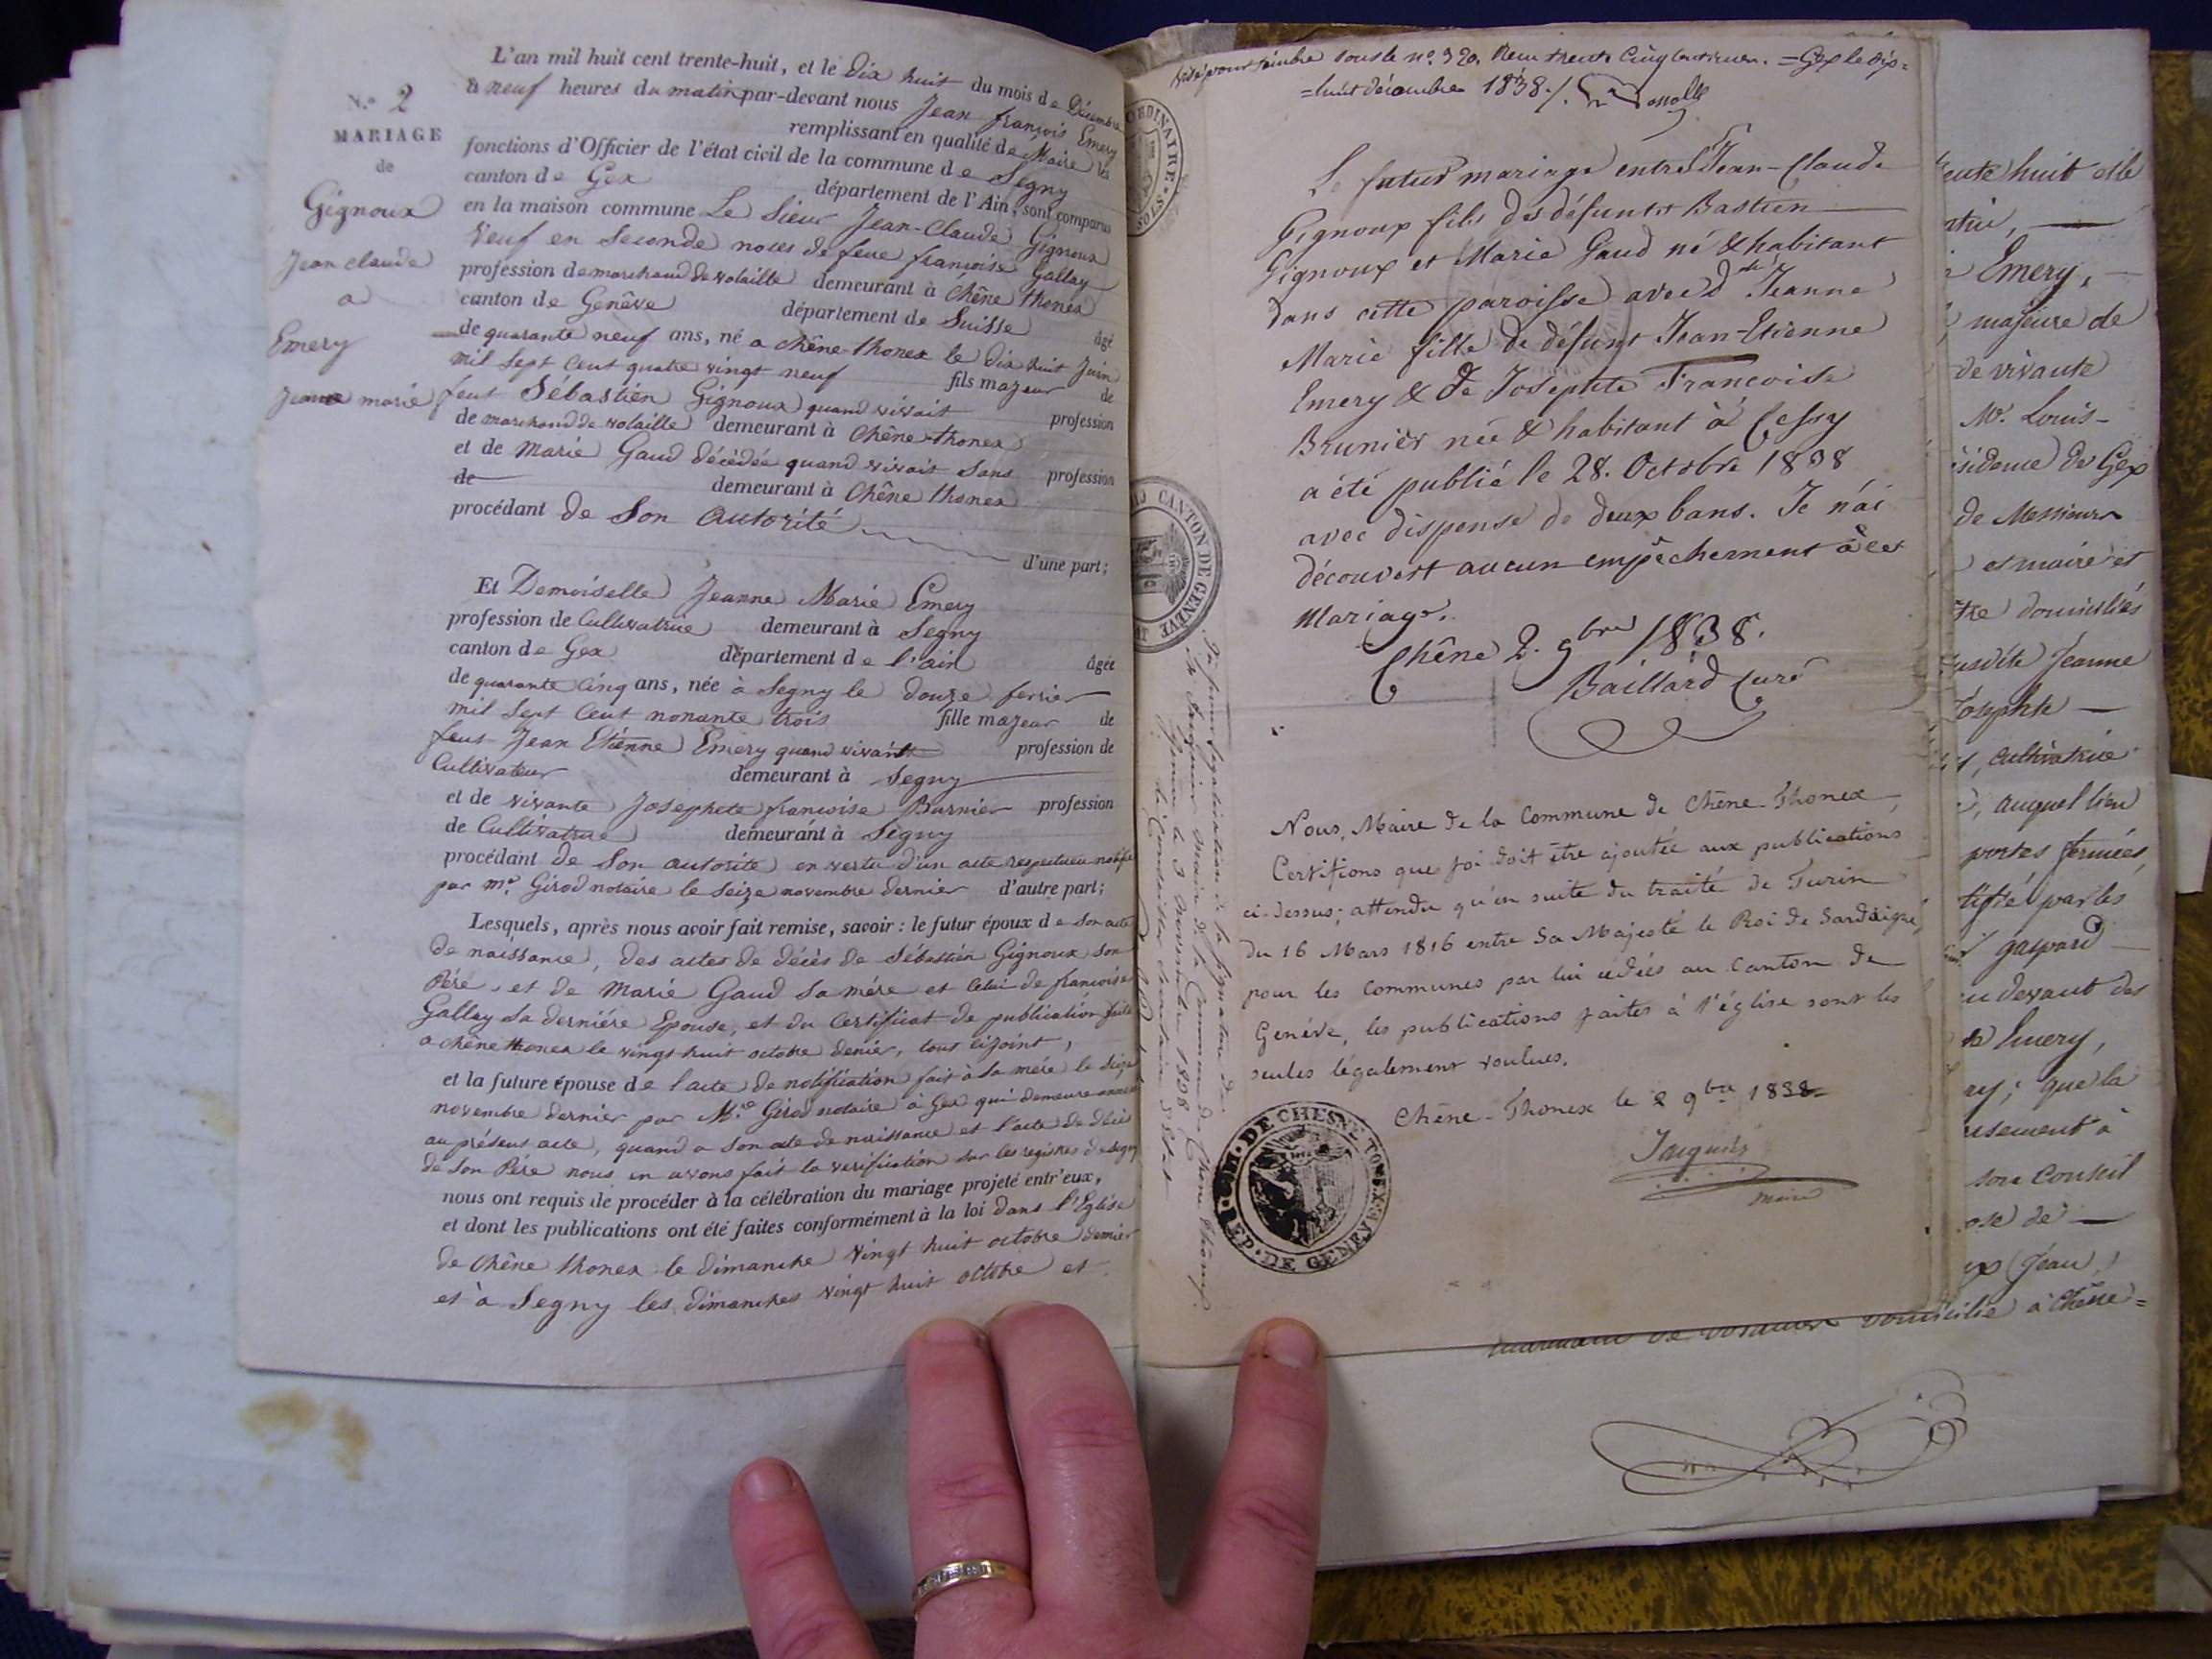 N.° 2
MARIAGE
de
Gignoux
Jean Claude
a
Emery
Jeanne marie
L'an mil huit cent trente-huit, et le dix huit du mois de Décembre
à neuf heures du matin par-devant nous Jean françois Emery
remplissant en qualité de Maire les
fonctions d'Officier de l'état civil de la commune de Segny
canton de Gex département de l'Ain, sont comparus
en la maison commune Le Sieur Jean-Claude Gignoux
Veuf en Seconde noces de feue françoise Gallay
profession de marchand de volaille demeurant à Chêne thonex
canton de Genêve département de Suisse âgé
de quarante neuf ans, né a Chêne-thonex le dix huit Juin
mil Sept Cent quatre vingt neuf fils majeur de
feut Sébastien Gignoux quand vivait profession
de marchand de volaille demeurant à Chêne-thonex
et de Marie Gaud décédée quand vivait Sans profession
de demeurant à Chêne thonex
procédant de Son Autorité
d'une part;
Et Demoiselle Jeanne Marie Emery
profession de Cultivatrice demeurant à Segny
canton de Gex département de l'ain âgée
de quarante cinq ans, née à Segny le douze fevrier
mil Sept Cent nonante trois fille majeur de
feut Jean Etienne Emery quand vivait profession de
Cultivateur demeurant à Segny
et de vivante Josephete françoise Burnier profession
de Cultivatrice demeurant à Segny
procédant de Son autorité en vertu d'un acte respectueu notifié
par m.e Girod notaire le Seize novembre dernier d'autre part;
Lesquels, après nous avoir fait remise, savoir : le futur époux de Son acte
de naissance, des actes de décès de Sébastien Gignoux son
Pére, et de Marie Gaud Sa mére et Celui de françoise
Gallay Sa derniére Epouse, et du Certificat de publication faite
a chêne thonex le vingt huit octobre denier, tout cijoint,
et la future épouse de l'acte de notification fait à Sa mére le Seize
novembre dernier par M.e Girod notaire à Gex qui demeure annexé
au présent acte, quand a Son acte de naissance et l'acte de décès
de Son Pére nous en avons fait la verification sur les registres de Segny
nous ont requis de procéder à la célébration du mariage projeté entr'eux,
et dont les publications ont été faites conformément à la loi dans l'Eglise
de Chêne thonex le dimanche vingt huit octobre dernier
et à Segny les dimanches vingt huit octobre et
Visé pour timbre sous le n.° 320. Reçu trente Cinq Centimes. = Gex le dix =
= huit décembre 1838.
Le futur mariage entre Jean-Claude
Gignoux fils des défunts Bastien
Gignoux et Marie Gaud né & habitant
dans cette paroisse avec dlle Jeanne
Marie fille de défunt Jean-Etienne
Emery & de Josephte Francoise
Brunier née & habitant à Cessy
a été publié le 28. Octobre 1838
avec dispense de deux bans. Je n'ai
découvert aucun empêchement à cet
Mariage.
Chêne 2. 9bre 1838.
Baillard Curé
Nous, Maire de la Commune de Chêne-Thonex,
Certifions que foi doit être ajoutée aux publications
ci-dessus; attendu qu'en suite du traité de Turin
du 16 Mars 1816 entre Sa Majesté le Roi de Sardaigne,
pour les Communes par lui cédées au Canton de
Genève, les publications faites à l'église sont les
seules légalement voulues.
Chêne-Thonex le 2 9bre 1838
Jaquier
maire
ORDINAIRE
CANTON DE GENÈVE
DE CHESNE TONEX
REP. DE GENEVE
Vu pour légalisation de la signature de
Mr Jaquier maire de la Commune de Chêne Thonex
Genève le 3 novembre 1838
le Conseiller Secrétaire d'Etat
trente huit et le
Emery,
majeure de
de vivante
Mr. Louis-
résidence de Gex
de Messieurs
et maire et
domiciliés
susdite Jeanne
Josephte
cultivatrice
, auquel lieu
portes fermées
par les
gaspard
au devant des
Emery,
; que la
son Conseil
de
(Jean)
domicilié à Chêne =